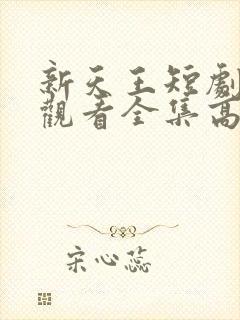 新天王短劇
觀看全集高
宋心蕊